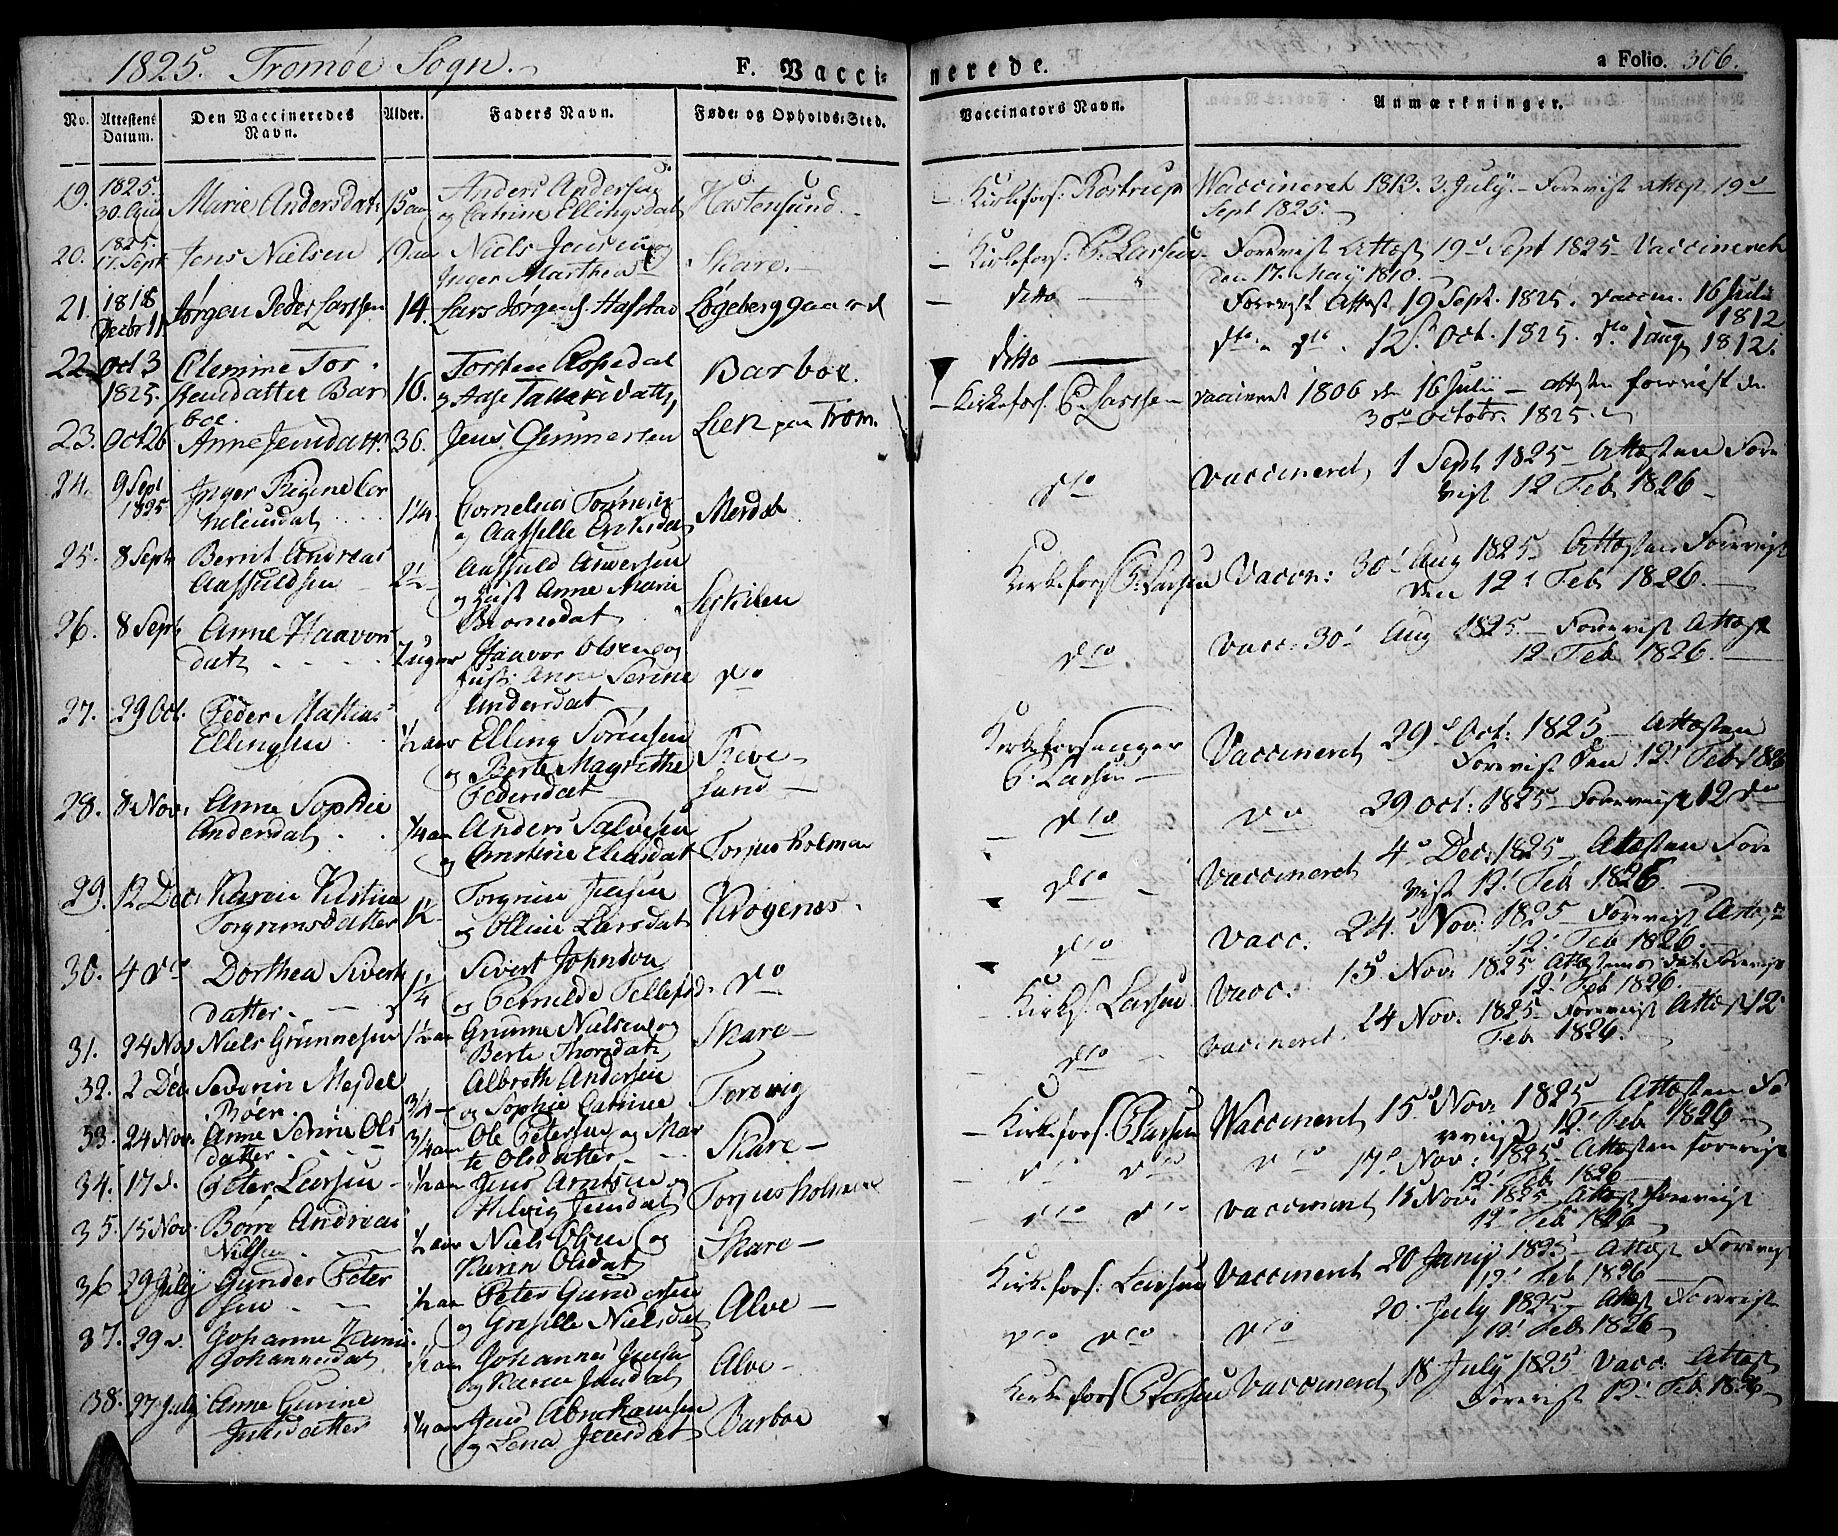 1825. Tromøe Sogn.
F. Vacci-
nerede.
a Folio. 306.
No.
Attestens Datum.
Den Vaccineredes Navn.
Alder.
Faders Navn.
Føde- og Opholds-Sted.
Vaccinators Navn.
Anmærkninger.
19. 1825. Anders Andersen
30. Aug Marie Andersdat. 15 aar og Catrine Ellingsdat Hastensund.
Kirkefors: Rostrup Vaccineret 1813. 3. July. – Forevist Attest 19d
Sept 1825.
20. 1825. 17. Sept Jens Nielsen 19 aar Niels Jensen og
Inger Marthea Skare.
Kirkefors: C. Larsen Forevist Attest 19d Sept 1825 – Vaccineret
den 17. May 1810.
21. 1818 Decbr 11 Jørgen Peder Larssen 14. Lars Jørgens. Hafstad Løgeberg gaard
ditto Forevist Attest 19 Sept. 1825. vaccin. 16 Julii
1812
22. Oct 3 Olemine Tor- Torsten Aspedal
1825. stensdatter Bar- 16. og Aase Barboe.
boe.
ditto dto dto 12. Oct. 1825. do 1 aug 1812.
23. Oct 26 Anne Jensdatt. 36. Jens Gunnersen Lien paa Trom.
Kirkefors. C. Larssen vaccineret 1806 den 16 Julii – attesten forevist den
30d Octobr. 1825.
24. 9 Sept Inger Regine Cor-
1825 neliusdat 1 1/4 Cornelius
og Aasselle Eriksdat Merdøe
dto vaccineret 1 Sept 1825 – Attesten Fore-
vist 12 Feb 1826 –
25. 8 Sept Bernt Andreas Aasfuld Andersen
Aasfuldsen 2 1/2 og Hust Anne Marie
Biørnsdat
Kirkefors C. Larsen Vaccn: 30' Aug 1825 – Attesten Forevist
den 12' Feb 1826. –
26. 8 Sept. Anne Haavor- Haavor Olsen og
dat Uger Hust: Anne Serine dto
Andersdat
dto. Vacc. 30' Aug 1825. – Forevist Attest
12 Feb 1826. –
27. 29 Oct. Peder Mathias
Ellingsen 1/2 aar Elling Sørensen
og Berte Magrethe Reve-
Pedersdat sund –
Kirkeforsanger
C. Larsen – Vaccineret 29d Oct: 1825 – Attesten
Forevist den 12' Feb 1826
28. 8 Nov. Anne Sophie
Andersdat 1/4 aar Anders Salvesen
og Anstine Eliasdat Torjusholmen
– dto do 29 Oct: 1825 – Forevist 12 do
29. 12 Dec. Karen Kistine
Torgrimsdatter 1/2 Torgrim Jensen
og Olleine Larsdat Krogenes.
– dto – vaccineret 4d Dec: 1825 – Attesten Fore-
vist 12' Feb 1826.
30. 4 do Dorthea Sivert-
datter. 1 1/4 Sivert Johnson
og Pernilde Tellefsd. do
dto vacc. 24 Nov. 1825 – Forevist Attest
12' Feb 1826. –
31. 24 Nov Niels Grunnesen 1/2 aar Grunne Nielsen og
Berte Thorsdat Skare –
Kirkf. Larsen vacc. 15 Nov 1825 Forevist
12' Feb 1826. –
32. 2 Dec. Severin Mejdel
Bøer. 3/4 – Albreth Andersen
og Sophie Catrine Torevig
dto – vaccineret. 24 Nov. 1825 – Forevist Attest 12'
Feb 1826.
33. 24 Nov. Anne Serine Ols-
datter 3/4 aar Ole Petersen og Mar-
te Olsdatter Skare –
– Kirkefors. C. Larsen Vaccineret 15d Nov. 1825 – Attesten Fo-
reviist 12' Feb 1826 –
34. 17 d. Peter Larsen 1/2 aar Jens Arntsen og
Helvig Jensdat Torjusholmen
– do do do 17d Nov: 1825 – Attesten forevist
12' Feb 1826
35. 15 Nov. Børre Andreas
Nilsen 1/2 aar Niels Olsen og
Karen Olsdat Skare –
– dto dto vaccineret 15 Nov. 1825 – Attest Forevist
12' Feb 1826
36 29 July Gunder Peter-
sen 1/2 aar Peter Gundersen
og Greselle Nielsdat Alve –
Kirkefors: Larsen vaccineret 20 Janij 1825 – Attest Forevist
12' Feb 1826
37. 29 d. Johanne Karine
Johannesdat 1/2 aar Johannes Jensen
og Karen Jensdat Alve –
do dto dto 20. July 1825 – Attest Forevist
12' Feb 1826 –
38. 27 July Anne Gurine
Jensdatter 1/4 aar Jens Abrahamsen
og Lena Jensdat Barboe
Kirkefors C Larsen vaccineret 18 July 1825 vacc. Attest
Forevist 12' Feb 1826